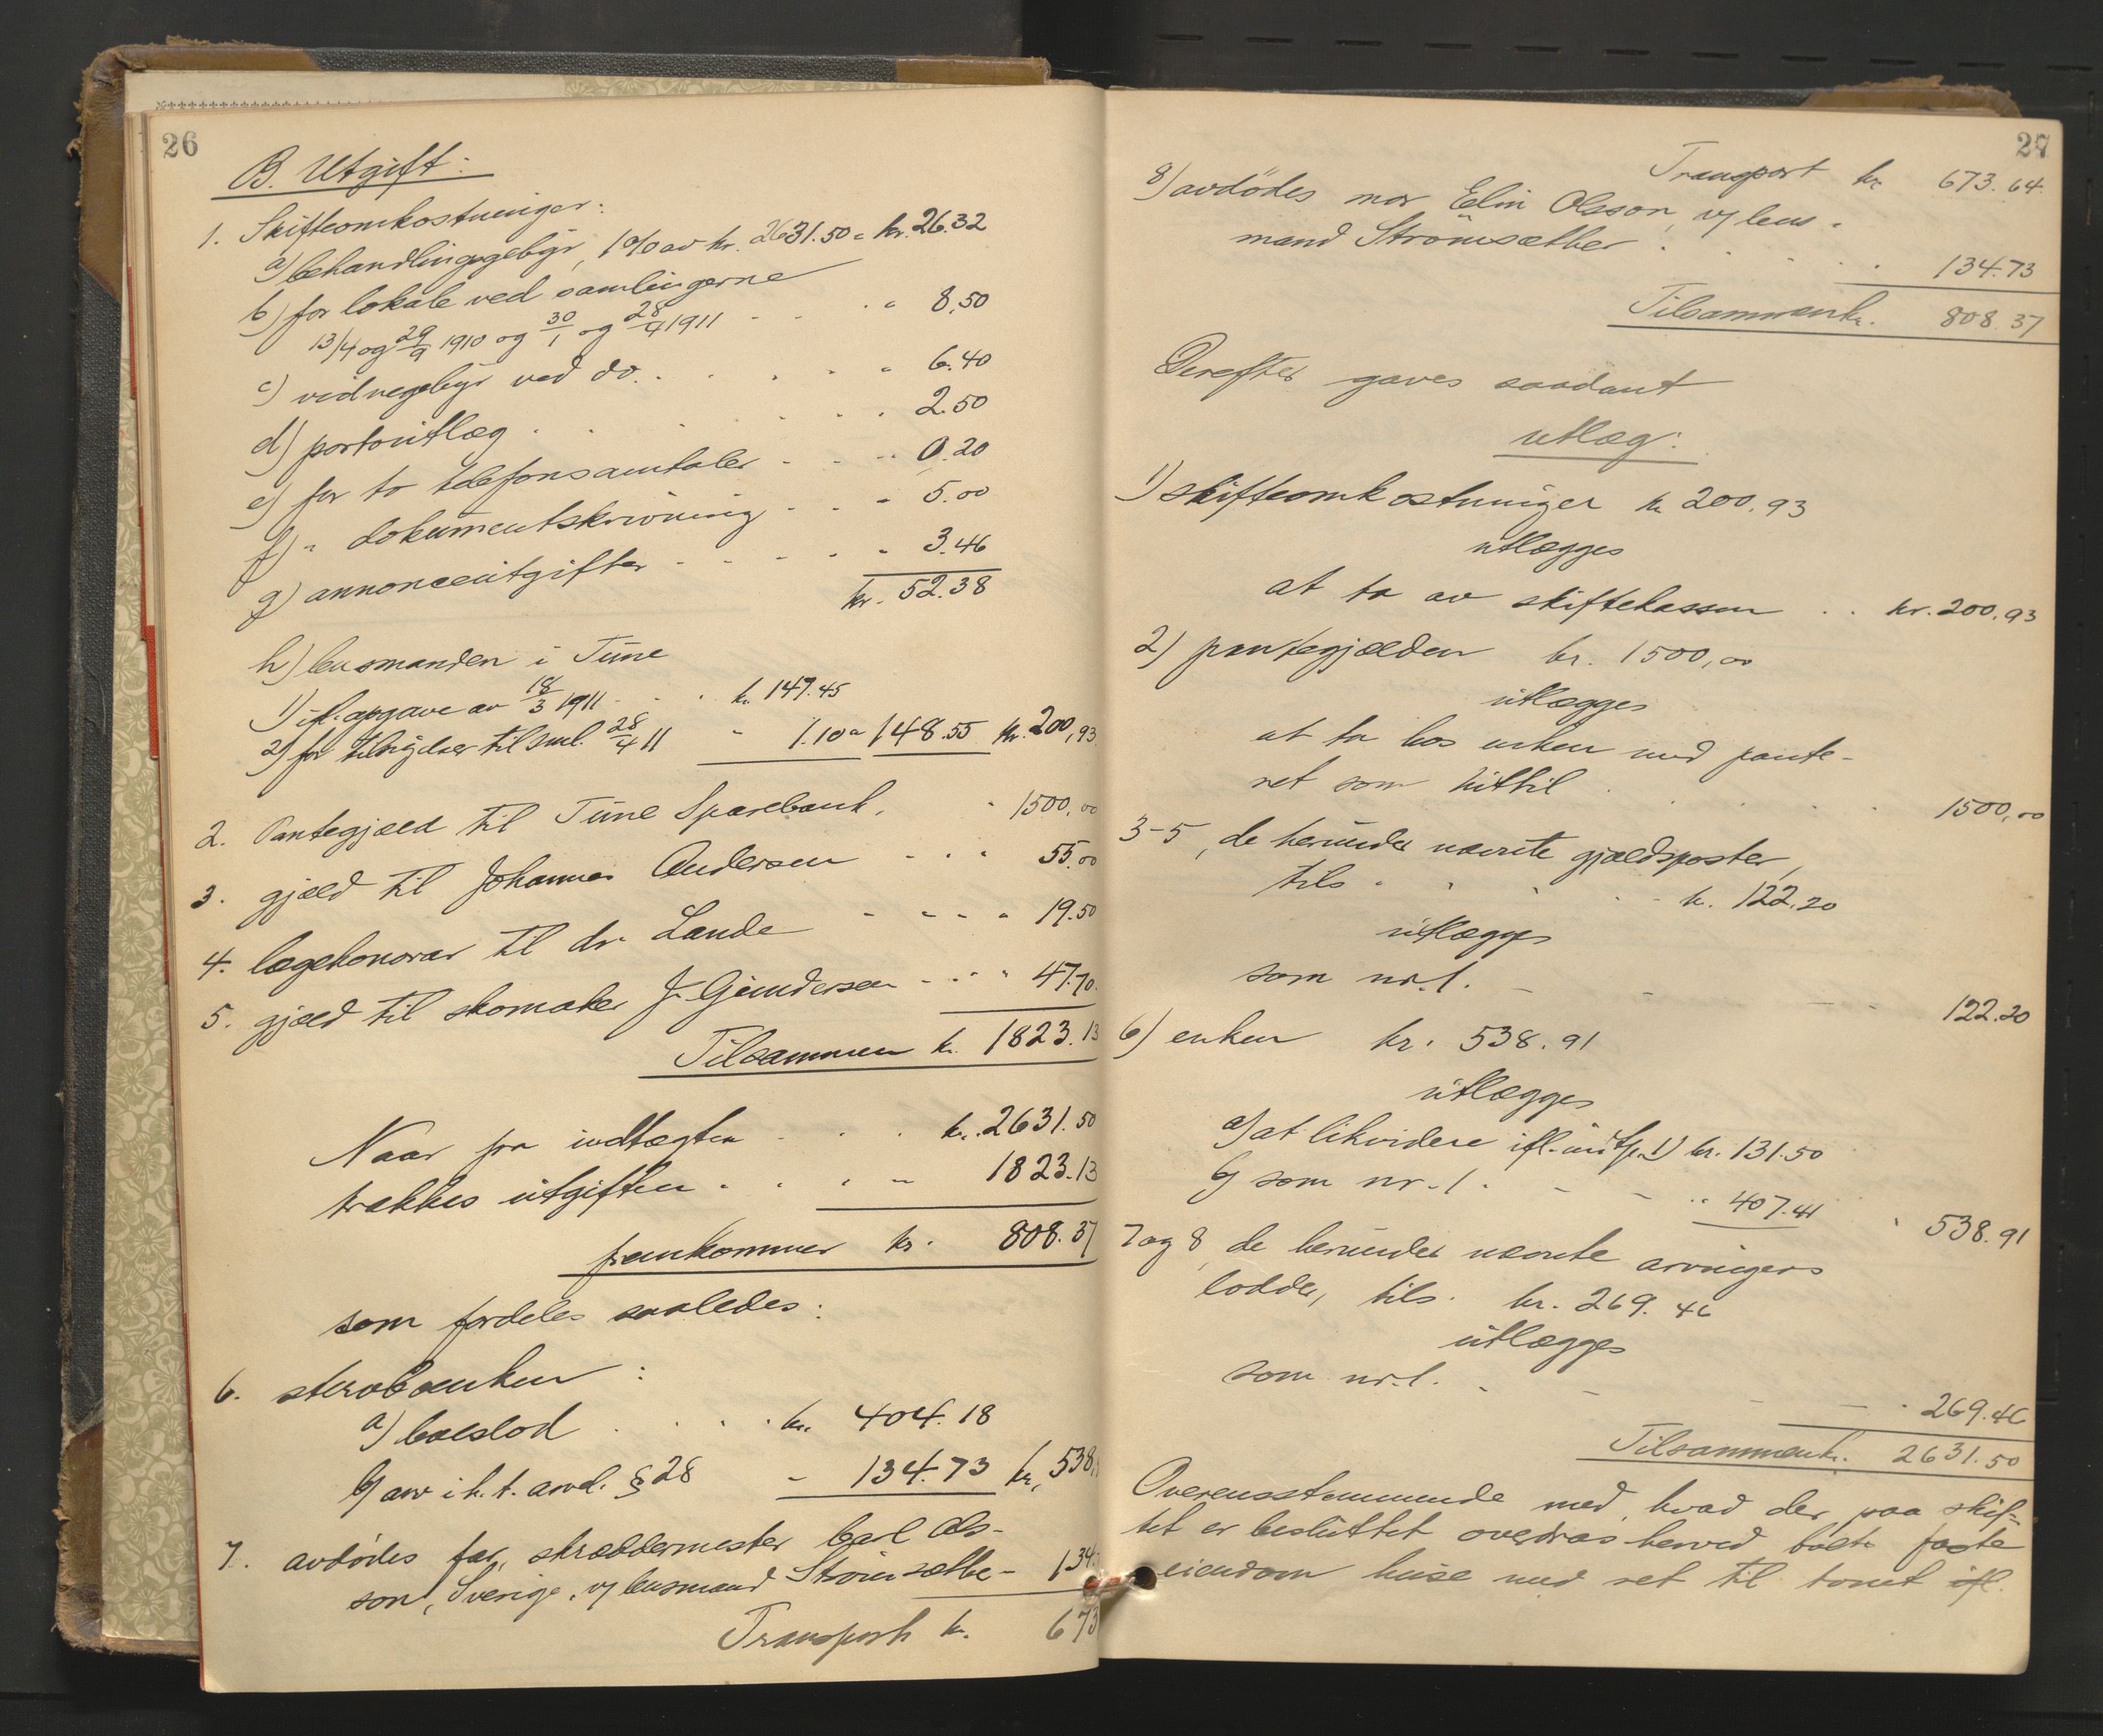 26
B. Utgift:
1. Skifteomkostninger:
a) behandlingsgebyr, 1% av kr. 2631.50 = kr. 26.32
b) for lokale ved samlingerne
13/4 og 29/9 1910 og 30/1 og 28/4 1911 - - . " 8.50
c) vidnegebyr ved do. . . . . " 6.40
d) portoutlæg . . . . . " 2.50
e) for to telefonsamtaler - - - " 0.20
f) " dokumentskrivning - - - " 5.00
g) annonceutgifter - - - - " 3.46
kr. 52.38
h) lensmanden i Tune
1) ifl. opgave av 18/3 1911 . . . kr. 147.45
2) for tilsigelser til saml. 28/4 11 " 1.10 = 148.55 kr. 200,93
2. Pantegjæld til Tune Sparebank, " 1500,00
3. gjæld til Johannes Andersen - - " 55.00
4. lægehonorar til dr. Lande - - - " 19.50
5. gjæld til skomaker J. Gundersen - - " 47.70
Tilsammen kr. 1823.13
Naar fra indtægten . . . kr. 2631.50
trækkes utgiften . . . " 1823.13
fremkommer kr. 808.37
som fordeles saaledes:
6. sterboenken:
a) boeslod . . . . kr. 404.18
b) arv i h. t. arvel. § 28 - 134.73 kr. 538,
7. avdødes far, skræddermester Carl Ols-
son, Sverige, v/ lensmand Strømsæther - 134.
Transport kr. 673
27
Transport kr. 673.64
8) avdödes mor Elin Olsson, v/ lens-
mand Strömsæther . . . . . 134.73
Tilsammen kr. 808.37
Derefter gaves saadant
utlæg:
1) skifteomkostninger kr. 200.93
utlægges
at ta av skiftekassen . . kr. 200.93
2) pantegjælden kr. 1500,00
utlægges
at ta hos enken med pante-
ret som hittil . . . . . 1500,00
3-5, de herunder nævnte gjældsposter,
tils . . . . kr. 122.20
utlægges
som nr. 1. - - - - 122.20
6) enken kr. 538.91
utlægges
a) at likvidere ifl. indt.p. 1) kr. 131.50
b) som nr. 1. - - " 407.41 " 538.91
7 og 8, de herunder nævnte arvingers
lodder, tils. kr. 269.46
utlægges
som nr. 1. - - - - 269.46
Tilsammen kr. 2631.50
Overensstemmende med, hvad der paa skif-
tet er besluttet overdras herved boets faste
eiendom huse med ret til tomt ifl.